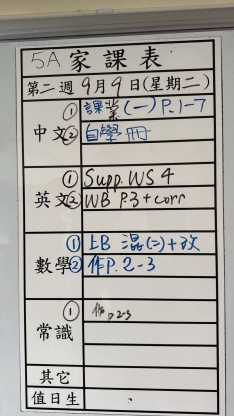 5A 家課表
第二週 9月9日(星期二)
中文 ① 課業(一) P.1-7
② 自學冊
英文 ① Supp. WS 4
② WB P.3 + corr
數學 ① 上B 混(二)+改
② 作P.2-3
常識 ① 作p2-3
其它
值日生